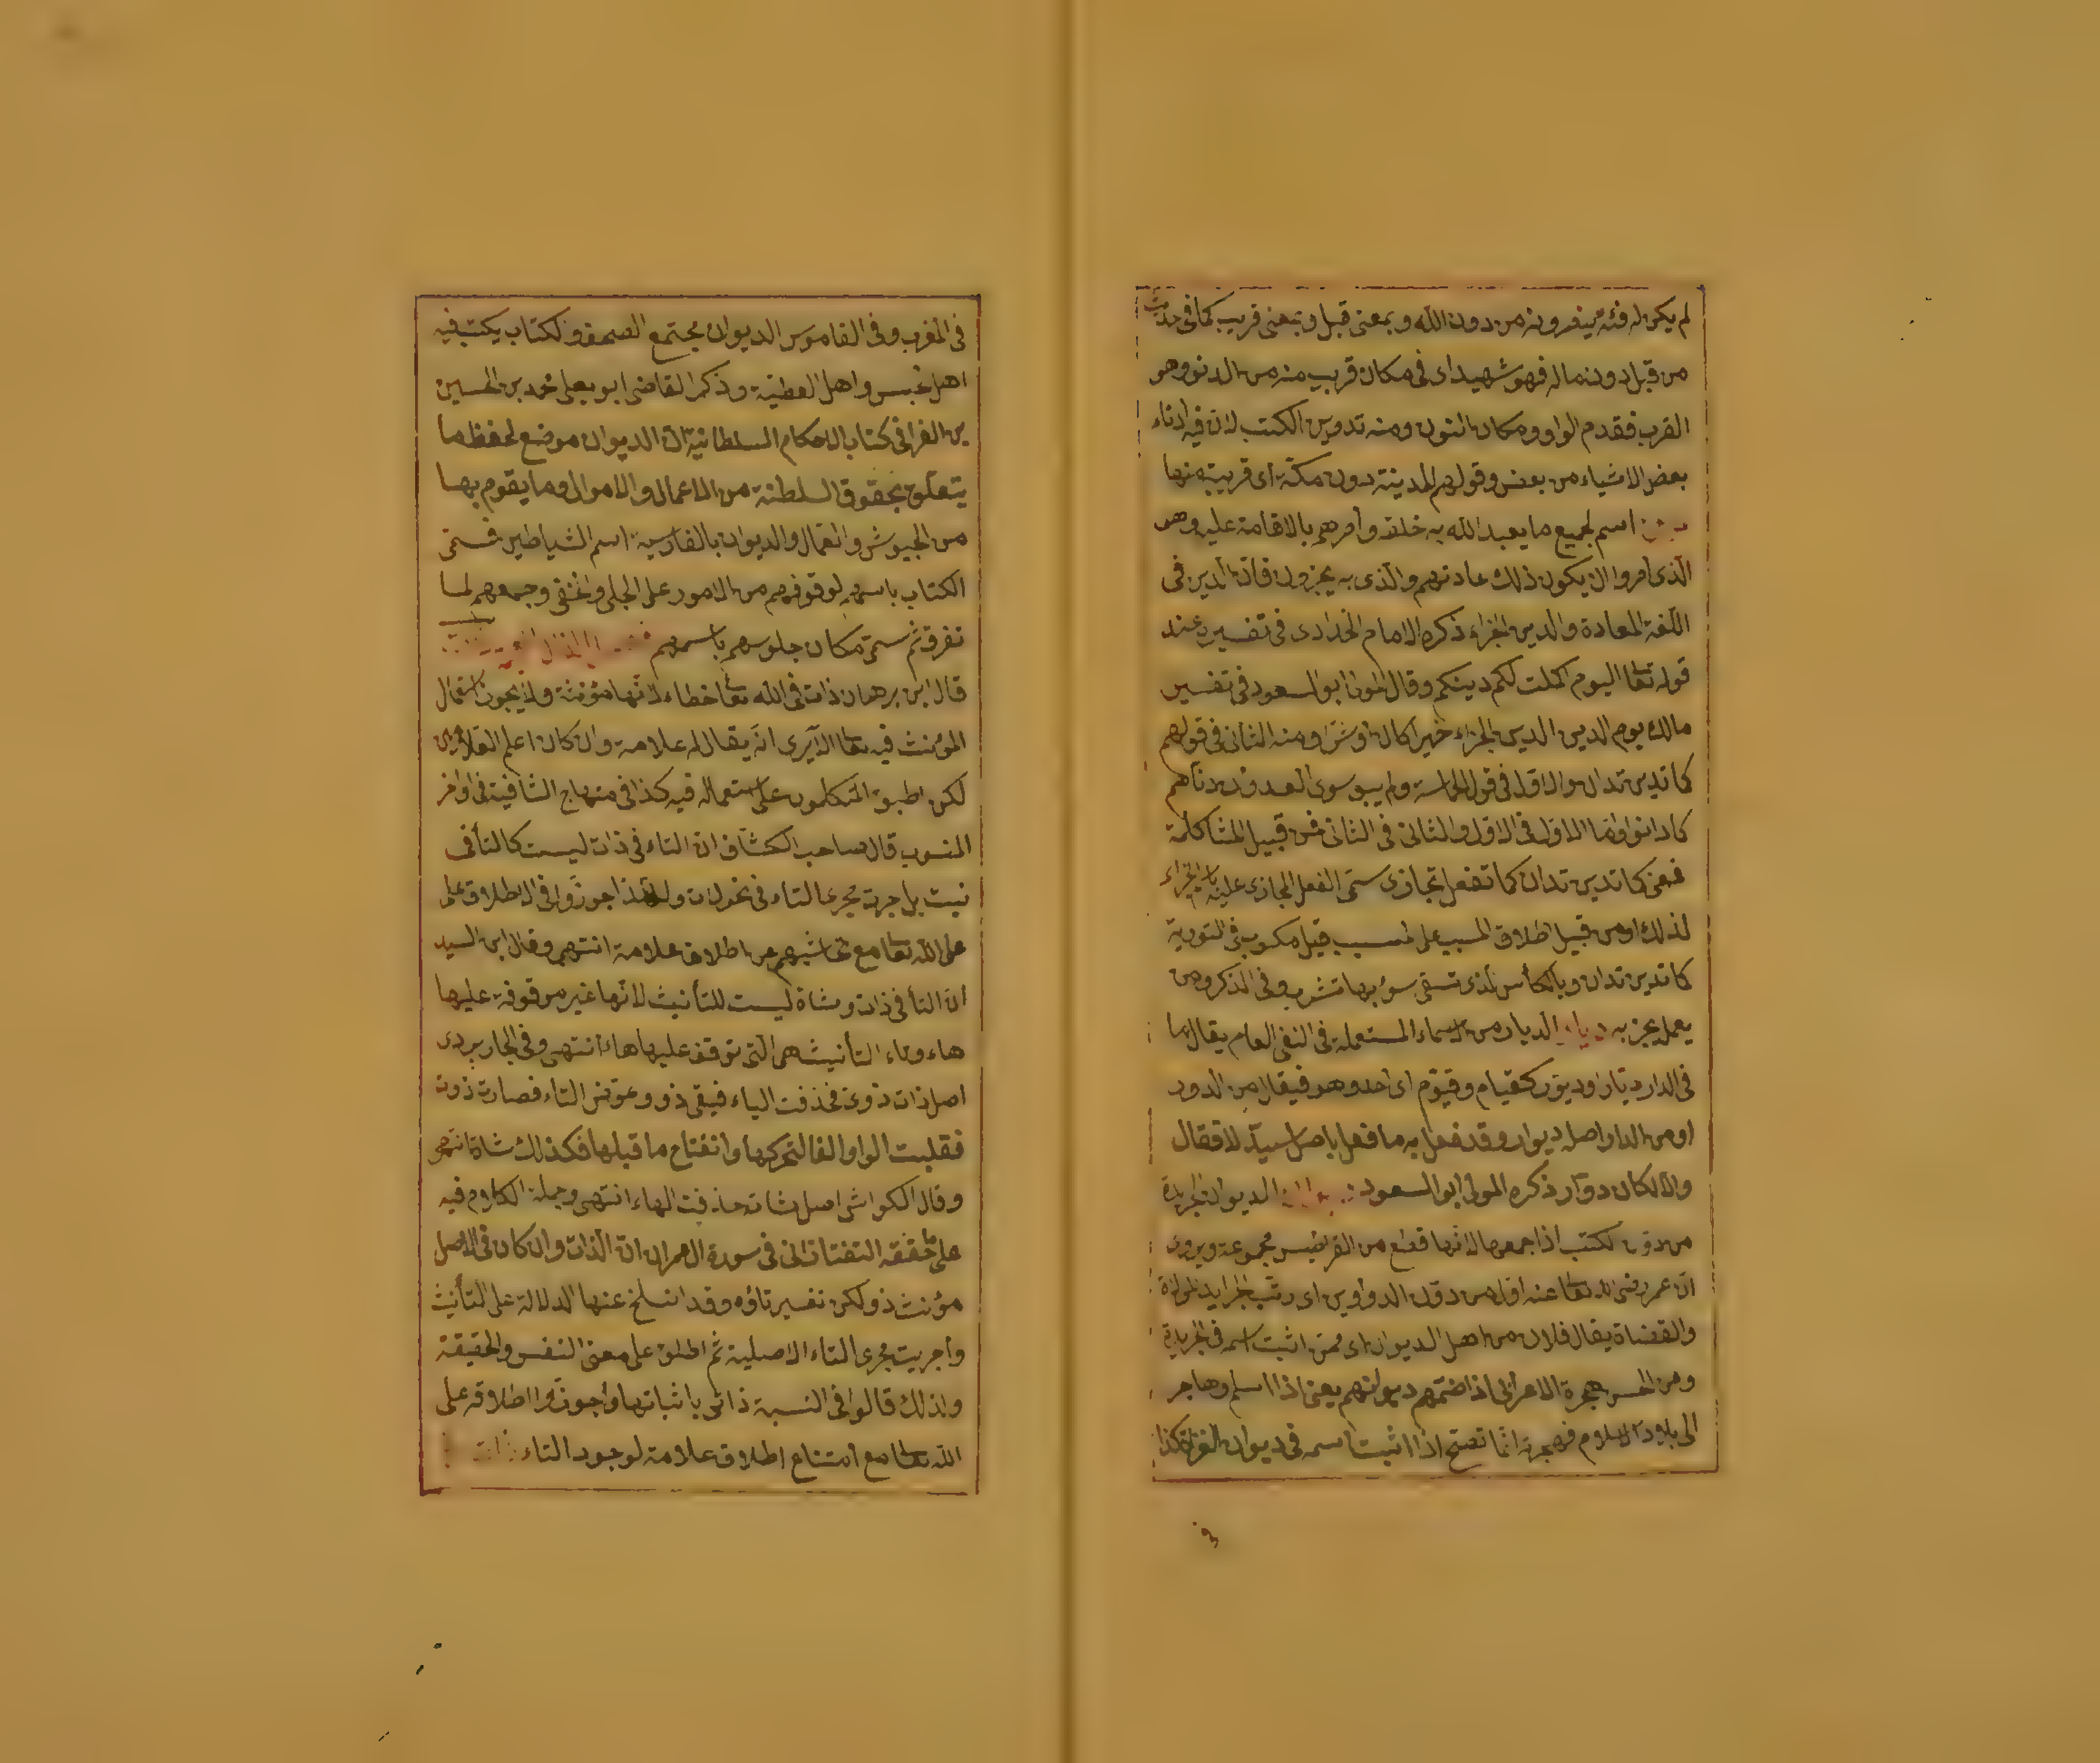 لم يكن له فئة ينصرونه من دون الله وبمعنى قبل وبمعنى قريب كما في حديث
من قتل دون ماله فهو شهيد اى في مكان قريب منه من الدنو وهو
القرب فقدم الواو ومكان النون ومنه تدوين الكتب لان فيه ادناء
بعض الاشياء من بعض وقولهم المدينة دون مكة اى قريبة منها
اسم لجميع ما يعبد الله به خلقه وأمرهم بالاقامة عليه وهو
الذى امروا ان يكون ذلك عادتهم والذى به يجزون فان الدين فى
اللغة العادة والدين الجزاء ذكره الامام الحدادى فى تفسيره عند
قوله تعا اليوم اكملت لكم دينكم وقال المولى ابو السعود فى تفسير
مالك يوم الدين الدين الجزاء خيرا كان او شرا ومنه الثانى فى قولهم
كما تدين تدان والاول فى قول الحماسة ولم يبق سوى العدوان دناهم
كما دانوا واما الاول فى الاول والثانى فى الثانى فمن قبيل المشاكلة
فمعنى كما تدين تدان كما تفعل تجازى سمى الفعل المجازى عليه باسم الجزاء
لذلك او من قبيل اطلاق المسبب على السبب قيل مكتوب فى التورية
كما تدين تدان وبالكأس الذى تسقى سؤرها تشرب وفى الذكر ومن
يعمل يجز به ديار الديار من الاسماء المستعملة فى النفى العام يقال ما
فى الدار ديار او ديور كقيام وقيوم اى احد وهو فيعال من الدور
او من الدار اصله ديوار وقد فعل به ما فعل باصل سيد لا فعال
والا لكان دوار ذكره المولى ابو السعود الديوان الجريدة
من دون الكتب اذا جمعها لانها قطع من القراطيس مجموعة ويروى
ان عمر رضى الله تعا عنه اول من دون الدواوين اى رتب الجرايد للولاة
والقضاة يقال فلان من اهل الديوان اى ممن اثبت اسمه فى الجريدة
وعن الحسن هجرة الاعرابى اذا ضمهم ديوانهم يعنى اذا اسلم وهاجر
الى بلاد الاسلام فهجرته انما تصح اذا اثبت اسمه فى ديوان الغزاة كذا
فى
فى المغرب وفى القاموس الديوان مجتمع الصحف والكتاب يكتب فيه
اهل الجيش واهل العطية وذكر القاضى ابو يعلى محمد بن الحسين
بن الفرا فى كتاب الاحكام السلطانية ان الديوان موضع لحفظ ما
يتعلق بحقوق السلطنة من الاعمال والاموال وما يقوم بها
من الجيوش والعمال والديوان بالفارسية اسم الشياطين فسمى
الكتاب باسمهم لوقوفهم من الامور على الجلى والخفى وجمعهم لما
تفرق ثم سمى مكان جلوسهم باسمهم
قال ابن برهان ذات فى الله تعا خطاء لانها مؤنثة ولا يجوز استعمال
المؤنث فيه تعا الا يرى انه يقال له علامة وان كان اعلم العالمين
لكن اطبق المتكلمون على استعماله فيه كذا فى منهاج الشافية فى اواخر
المنسوب قال صاحب الكشاف ان التاء فى ذات ليست كالتا فى
نبت بل اجرى مجرى التاء فى نحو لات ولهذا جوزوا فى الاطلاق على
على الله تعا مع تحاشيهم عن اطلاق علامة انتهى وقال ابن السيد
ان التا فى ذات وشاة ليست للتأنيث لانها غير موقوفة عليها
هاء وتاء التأنيث هى التى توقف عليها هاء انتهى وفى الجاربردى
اصل ذات ذوى فحذفت الياء فبقى ذو وعوض التاء فصارت ذوت
فقلبت الواو الفا لتحركها وانفتاح ما قبلها فكذلك شاة انتهى
وقال الكواشى اصل شاة حذفت الهاء انتهى وجملة الكلام فيه
على ما حققه التفتازانى فى سورة ال عمران ان الذات وان كان فى الاصل
مؤنث ذو لكن تفسير تاؤه وقد انسلخ عنها الدلالة على التأنيث
وأجريت مجرى التاء الاصلية ثم اطلق على معنى النفس والحقيقة
ولذلك قالوا فى النسبة ذاتى باثباتها وجوزوا اطلاقه على
الله تعا مع امتناع اطلاق علامة لوجود التاء